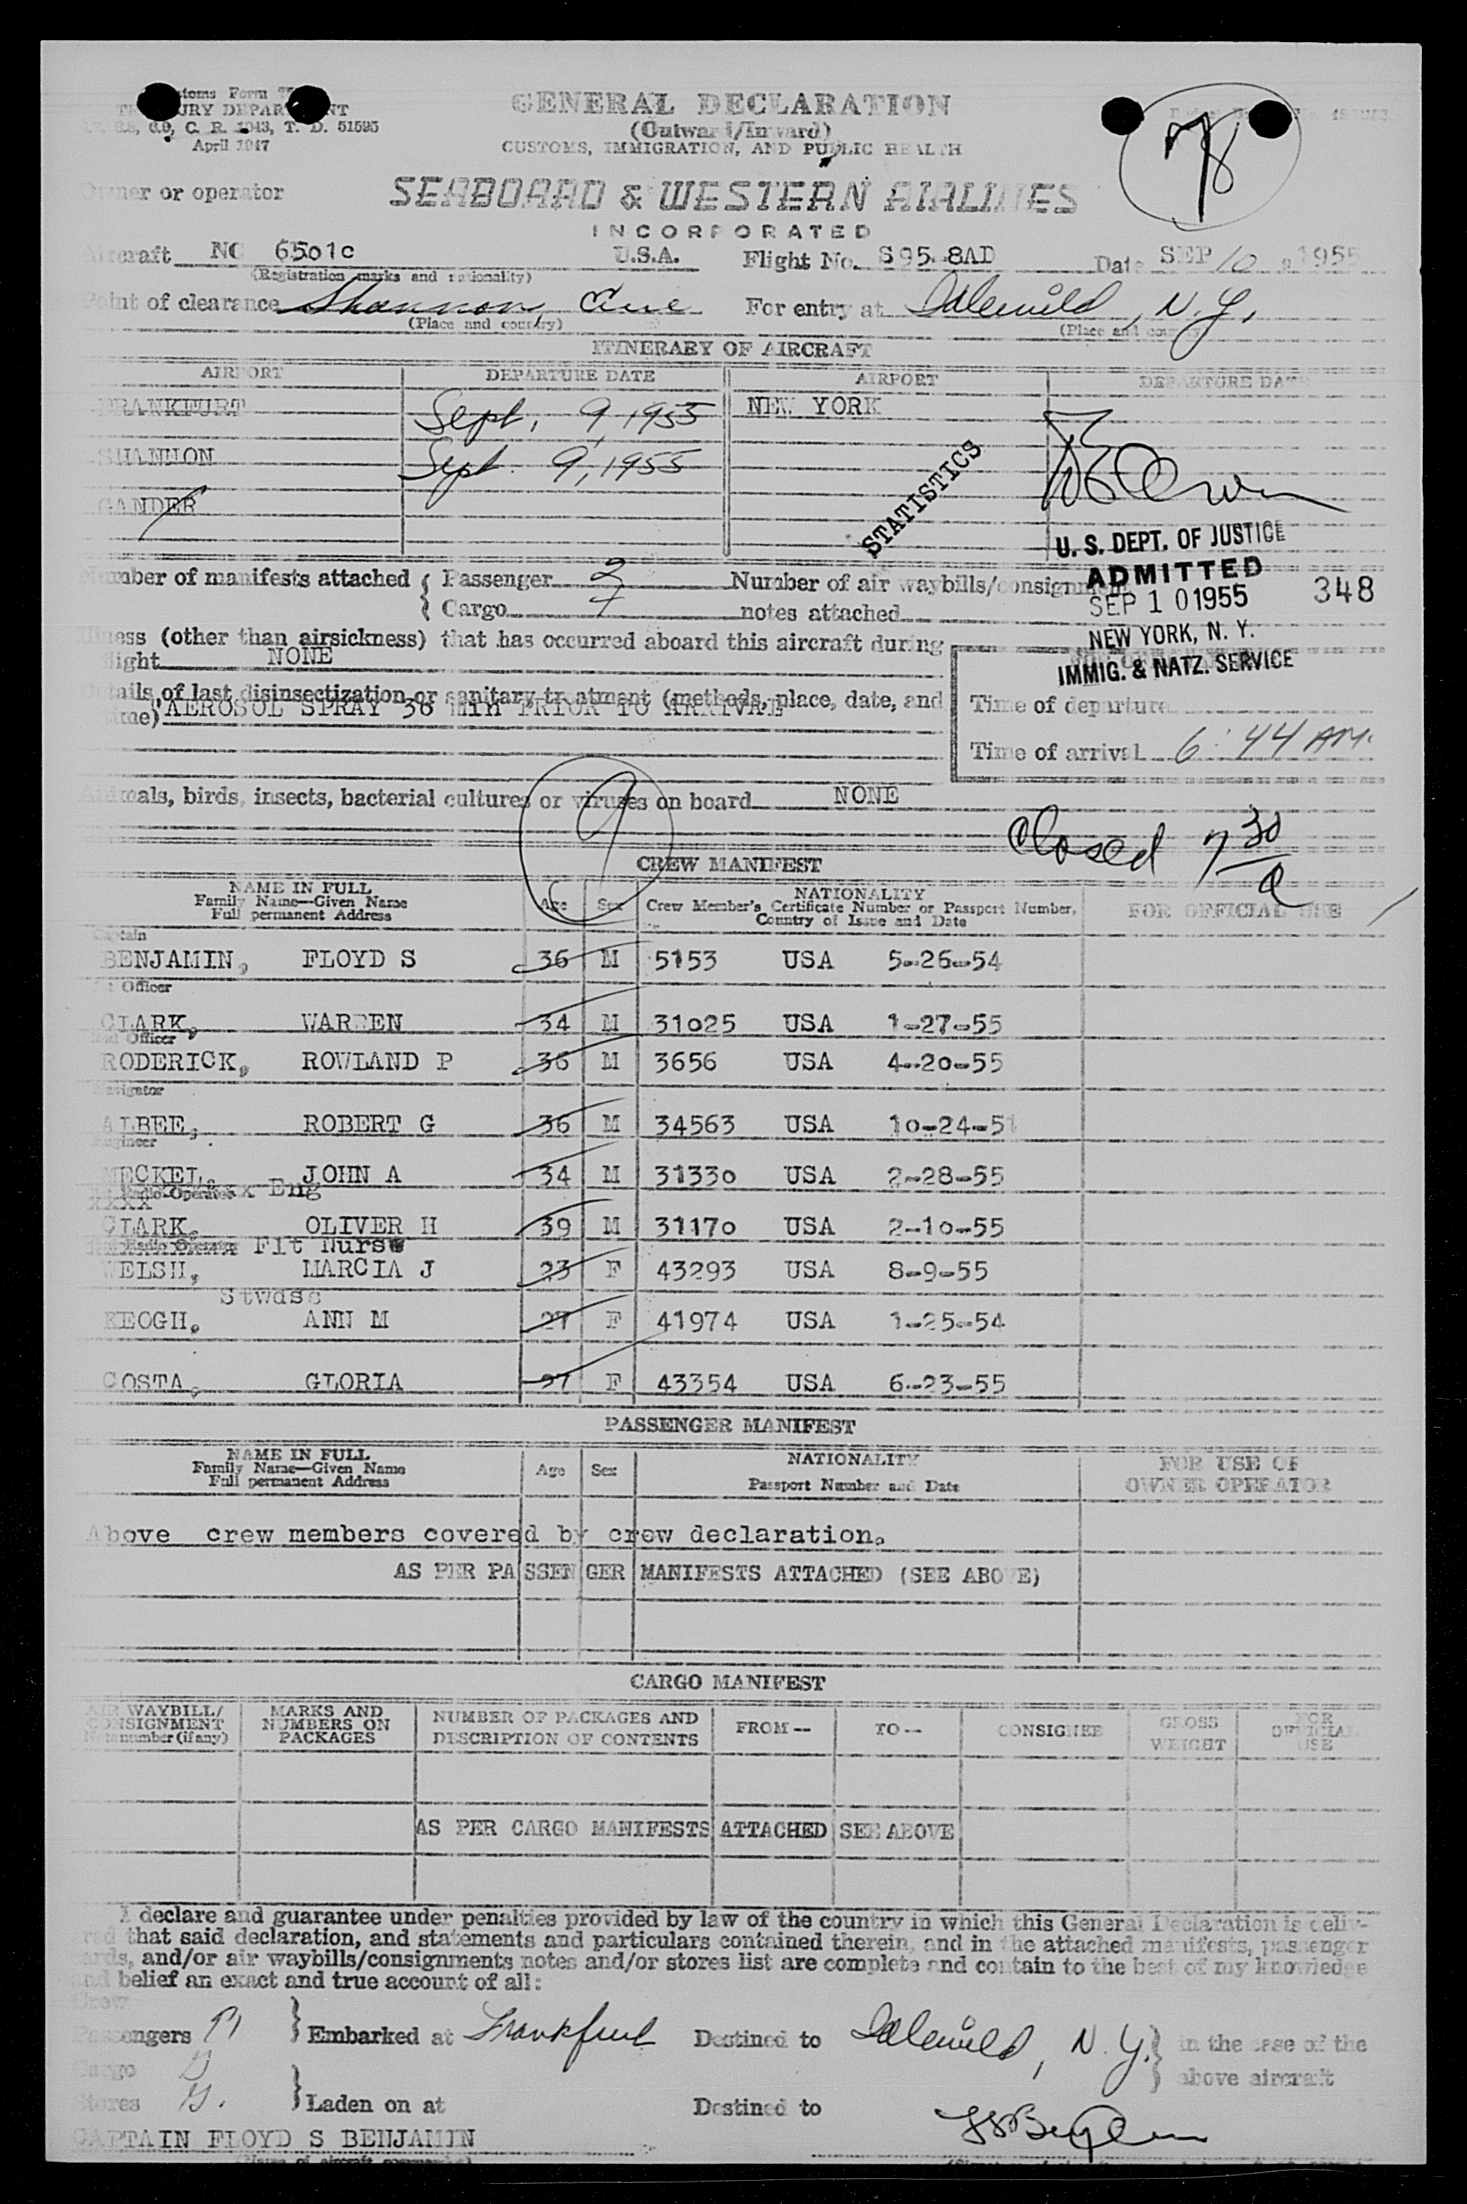 April 1947
GENERAL DECLARATION
(Outward/Inward)
CUSTOMS, IMMIGRATION, AND PUBLIC HEALTH
78
Owner or operator SEABOARD & WESTERN AIRLINES
INCORPORATED
Aircraft NC 6501C U.S.A. Flight No. S95-8AD Date SEP 10, 1955
(Registration marks and nationality)
Point of clearance Shannon, Eire For entry at Idlewild, N.Y.
(Place and country) (Place and country)
ITINERARY OF AIRCRAFT
AIRPORT DEPARTURE DATE AIRPORT DEPARTURE DATE
FRANKFURT Sept. 9, 1955 NEW YORK
SHANNON Sept. 9, 1955
GANDER
STATISTICS
U. S. DEPT. OF JUSTICE
ADMITTED
SEP 10 1955
NEW YORK, N. Y.
IMMIG. & NATZ. SERVICE
348
Number of manifests attached { Passenger 2 Number of air waybills/consignment
{ Cargo 7 notes attached
Illness (other than airsickness) that has occurred aboard this aircraft during
flight NONE
Details of last disinsectization or sanitary treatment (methods, place, date, and
time) "AEROSOL SPRAY 30 MIN PRIOR TO ARRIVAL
Time of departure
Time of arrival 6:44 AM.
Animals, birds, insects, bacterial cultures or viruses on board NONE
9
Closed 7 30/a
CREW MANIFEST
NAME IN FULL
Family Name—Given Name
Full permanent Address
Age Sex
NATIONALITY
Crew Member's Certificate Number or Passport Number,
Country of Issue and Date
FOR OFFICIAL USE
Captain
BENJAMIN, FLOYD S 36 M 5153 USA 5-26-54
1st Officer
CLARK, WARREN 34 M 31025 USA 1-27-55
2nd Officer
RODERICK, ROWLAND P 36 M 3656 USA 4-20-55
Navigator
ALBEE, ROBERT G 36 M 34563 USA 10-24-51
Engineer
MECKEL, JOHN A 34 M 31330 USA 2-28-55
Radio Operator x Eng
CLARK, OLIVER H 39 M 31170 USA 2-10-55
Radio Operator Flt Nurse
WELSH, MARCIA J 23 F 43293 USA 8-9-55
Stwdss
KEOGH, ANN M 27 F 41974 USA 1-25-54
COSTA, GLORIA 27 F 43354 USA 6-23-55
PASSENGER MANIFEST
NAME IN FULL
Family Name—Given Name
Full permanent Address
Age Sex
NATIONALITY
Passport Number and Date
FOR USE OF
OWNER OPERATOR
Above crew members covered by crew declaration.
AS PER PASSENGER MANIFESTS ATTACHED (SEE ABOVE)
CARGO MANIFEST
AIR WAYBILL/
CONSIGNMENT
Note number (if any)
MARKS AND
NUMBERS ON
PACKAGES
NUMBER OF PACKAGES AND
DESCRIPTION OF CONTENTS
FROM-- TO-- CONSIGNEE
GROSS
WEIGHT
FOR
OFFICIAL
USE
AS PER CARGO MANIFESTS ATTACHED SEE ABOVE
I declare and guarantee under penalties provided by law of the country in which this General Declaration is deliv-
red that said declaration, and statements and particulars contained therein, and in the attached manifests, passenger
ards, and/or air waybills/consignments notes and/or stores list are complete and contain to the best of my knowledge
and belief an exact and true account of all:
Crew
Passengers } Embarked at Frankfurt Destined to Idlewild, N.Y. } in the case of the
Cargo above aircraft
Stores } Laden on at Destined to
CAPTAIN FLOYD S BENJAMIN FSBenjamin